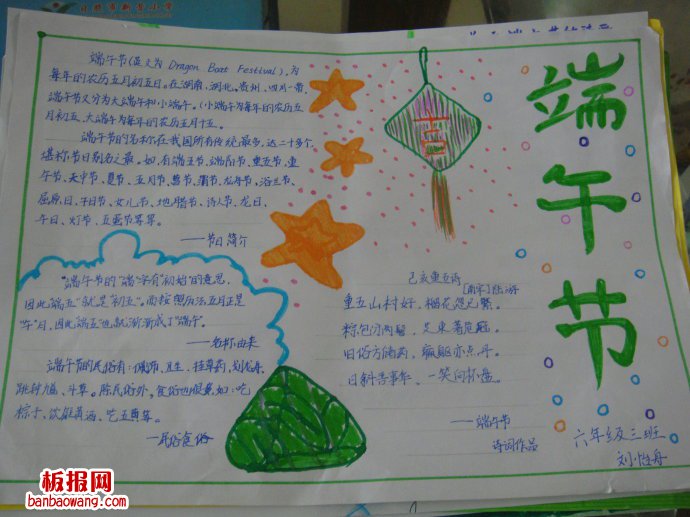 端午节(英文为 Dragon Boat Festival),为
每年的农历五月初五日。在湖南,湖北,贵州,四川一带,
端午节又分为大端午和小端午。(小端午为每年的农历五
月初五,大端午为每年的农历五月十五。
端午节的名称在我国所有传统最多,达二十多个,
堪称节日别名之最。如,有端五节、端阳节、重五节、重
午节、天中节、夏节、五月节、菖节、蒲节、龙舟节、浴兰节、
屈原日、午日节、女儿节、地腊节、诗人节、龙日、
午日、灯节、五蛋节等等。
——节日简介
"端午节"的"端"字有"初始"的意思,
因此"端五"就是"初五"。而按照历法五月正是
"午"月,因此"端五"也就渐渐成了"端午"。
——名称由来
端午节的民俗有:
挂草药、划龙舟、
斗草。除民俗外,食俗也很
吃
粽子、饮雄黄酒、吃五黄等。
——民俗食俗
端
午
节
己亥重五诗
[南宋]陆游
重五山村好,榴花忽已繁。
粽包分两髻,艾束著危冠。
旧俗方储药,羸躯亦点丹。
日斜吾事毕,一笑向杯盘。
——端午节
诗词作品
六年级三班
刘怡舟
板报网
banbaowang.com